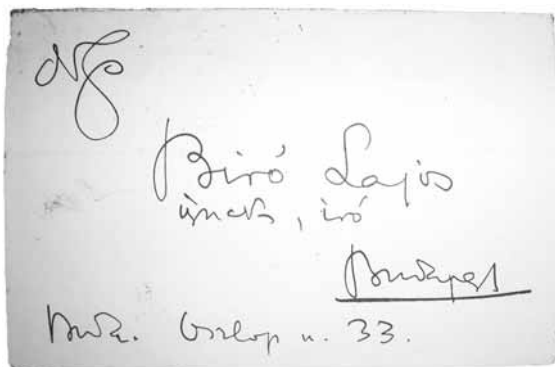 Ngs
Biró Lajos
úrnak, iró
Budapest
Buda. Oszlop u. 33.